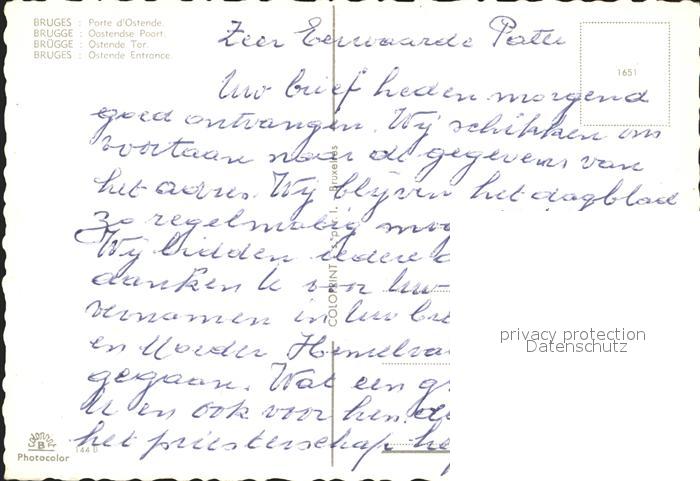 BRUGES : Porte d'Ostende.
BRUGGE : Oostendse Poort.
BRÜGGE : Ostende Tor.
BRUGES : Ostende Entrance.
1651
Zeer Eerwaarde Pater
Uw brief heden morgend
goed ontvangen. Wij schikken ons
voortaan naar de gegevens van
het adres. Wij blijven het dagblad
zo regelmatig mog
Wij bidden iedere d
danken U voor Uw
vernomen in Uw bri
en Moeder Hemelva
gegaan. Wat een g
U en ook voor hen. de
het priesterschap he
COLOPRINT S.P.R.L. Bruxelles
privacy protection
Datenschutz
Photocolor
144 B